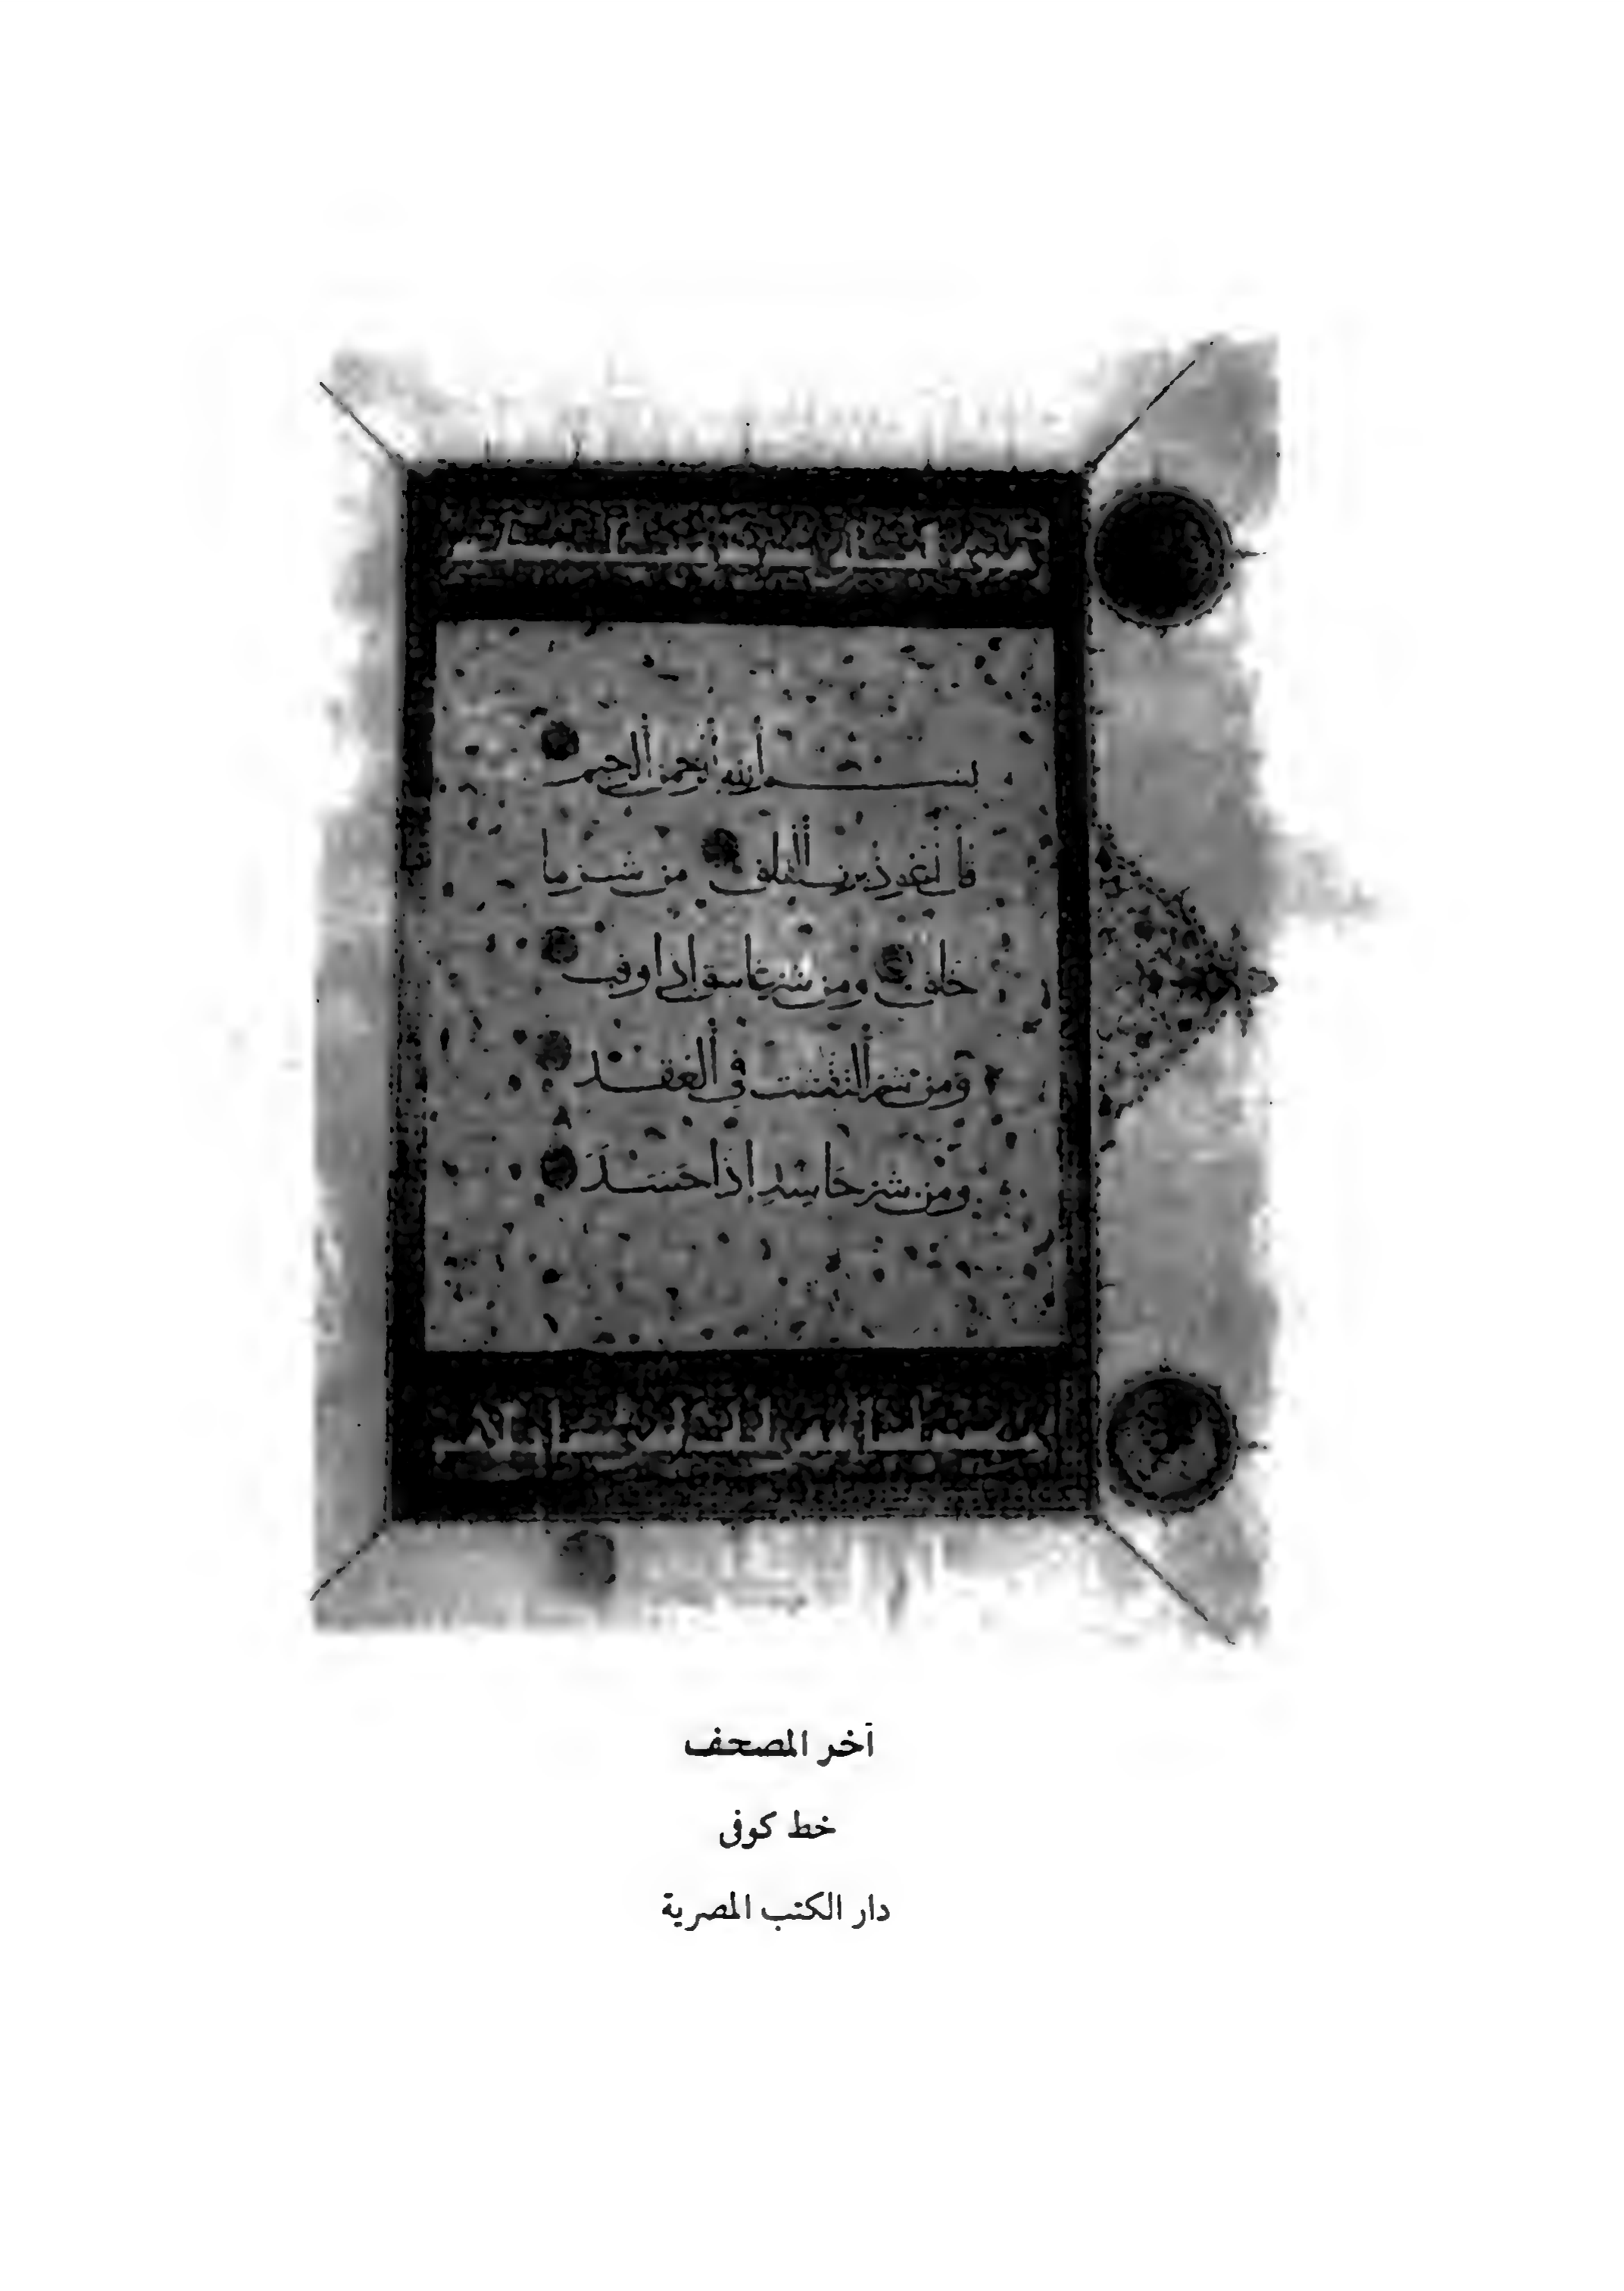 بسم ألله ألرحمن ألرحيم
قل أعوذ برب ألفلق من شر ما
خلق ومن شر غاسق إذا وقب
ومن شر ألنفثت في ألعقد
ومن شر حاسد إذا حسد
آخر المصحف
خط كوفى
دار الكتب المصرية